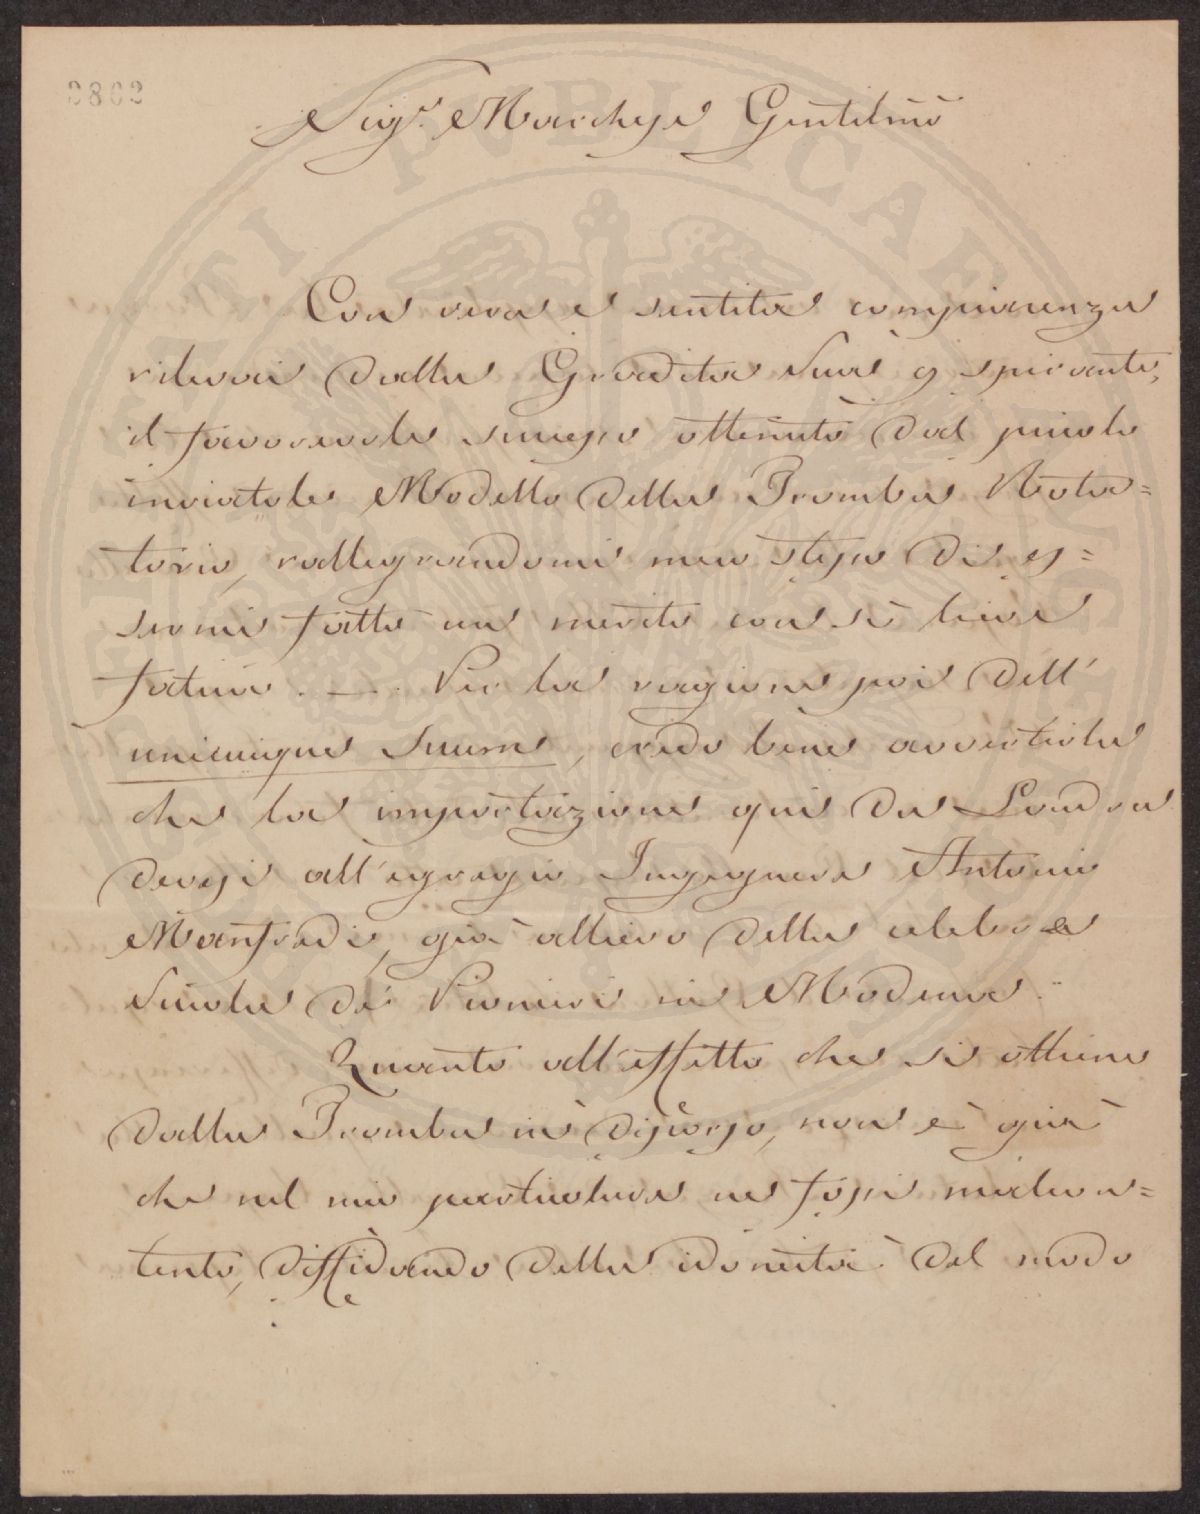 0802
Sig.r Marchese Gentilmo
Con viva e sentita compiacenza
rilevai dalla Gradita Sua 9 spirante,
il favorevole successo ottenuto dal piccolo
inviatole Modello della Tromba Rota=
toria, rallegrandomi meco stesso di es=
sermi fatto un merito con sì lieve
fatica. —. Per la ragione poi dell'
unicuique Suum, credo bene avvertirla
che la importazione qui da Londra
devesi all'egregio Ingegnere Antonio
Manfredi, già allievo della celebre
Scuola de' Pionieri in Modena.
Quanto all'effetto che si ottiene
dalla Tromba in discorso, non è già
che nel mio particolare ne fossi malcon=
tento, diffidando della idoneità del modo